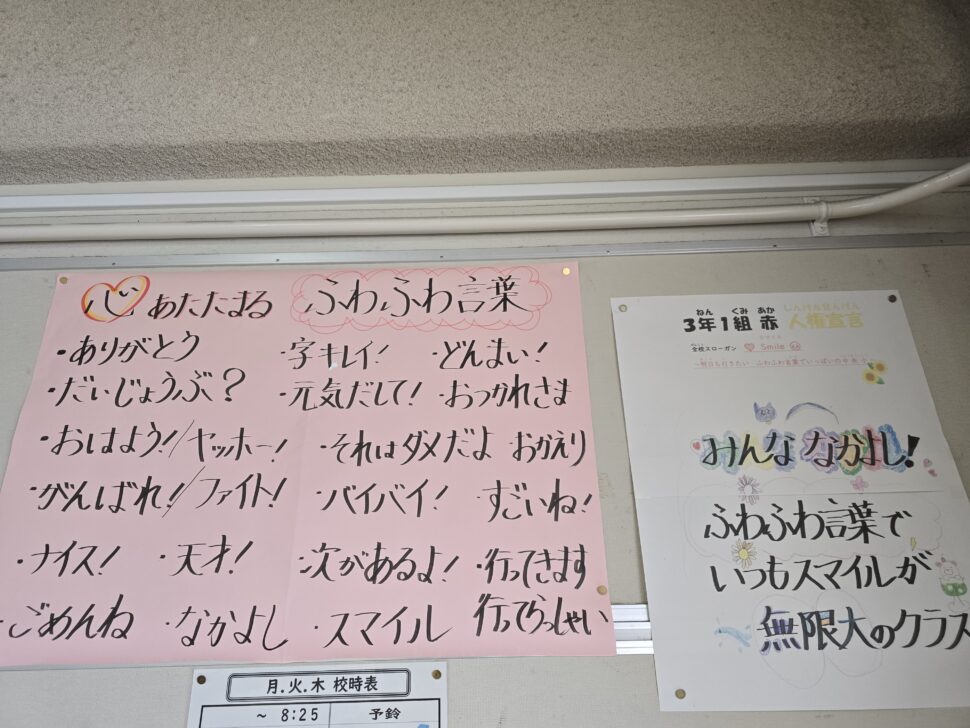 心 あたたまる ふわふわ言葉
・ありがとう ・字キレイ! ・どんまい!
・だいじょうぶ? ・元気だして! ・おつかれさま
・おはよう!/ヤッホー! ・それはダメだよ おかえり
・がんばれ!/ファイト! ・バイバイ! ・すごいね!
・ナイス! ・天才! ・次があるよ! ・行ってきます
・ごめんね ・なかよし ・スマイル 行てらっしゃい
月.火.木 校時表
~ 8:25 予鈴
ねん くみ あか じんけんせんげん
3年1組 赤 人権宣言
全校スローガン Smile
みんな なかよし!
ふわふわ言葉で
いつもスマイルが
無限大のクラス